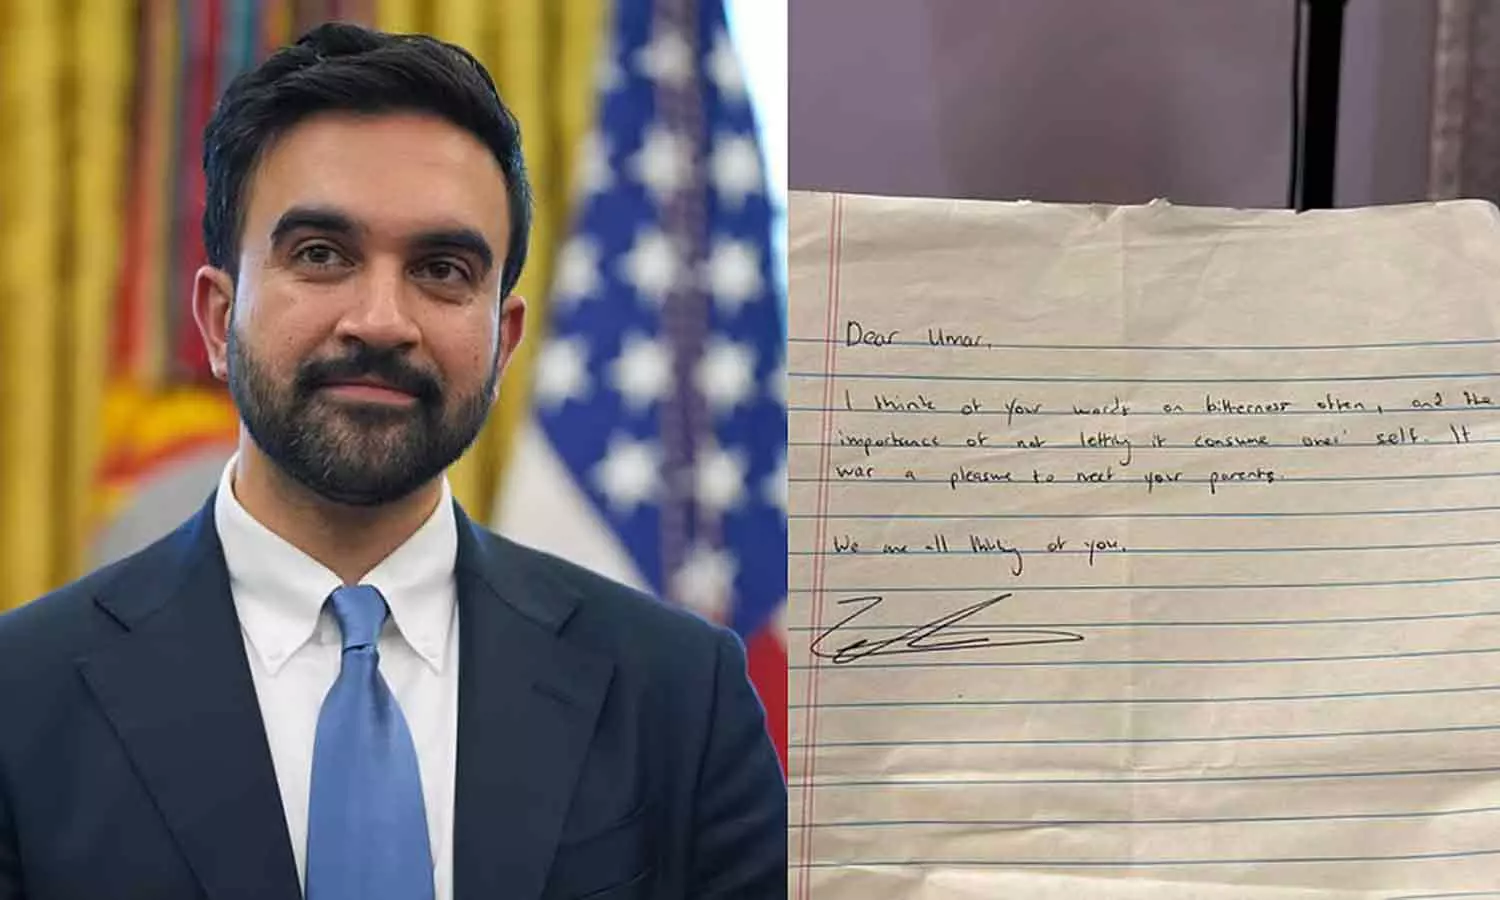 Dear Umar,
I think of your words on bitterness often, and the
importance of not letting it consume ones' self. It
was a pleasure to meet your parents.
We are all thinking of you.